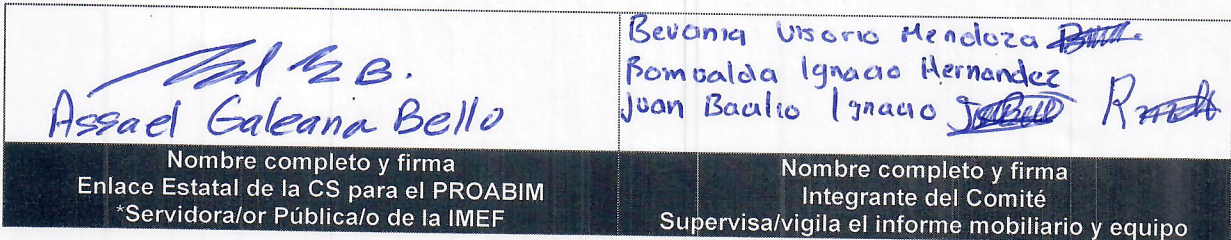 Assael Galeana Bello
Nombre completo y firma
Enlace Estatal de la CS para el PROABIM
*Servidora/or Pública/o de la IMEF
Bevania Visorio Mendoza
Romualda Ignacio Hernandez
Juan Baulio Ignacio
Nombre completo y firma
Integrante del Comité
Supervisa/vigila el informe mobiliario y equipo